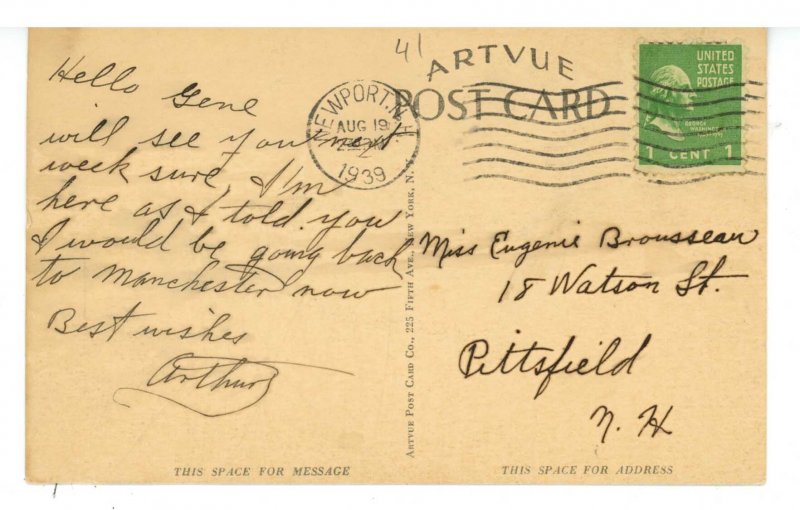 Hello Gene
will see you next
week sure, I'm
here as I told you
I would be going back
to Manchester now
Best wishes
Arthur
THIS SPACE FOR MESSAGE
41
ARTVUE
POST CARD
NEWPORT, N.H.
AUG 19
1939
UNITED
STATES
POSTAGE
GEORGE
WASHINGTON
1 CENT 1
ARTVUE POST CARD CO., 225 FIFTH AVE., NEW YORK, N. Y.
Miss Eugenie Brousseau
18 Watson St.
Pittsfield
N. H
THIS SPACE FOR ADDRESS